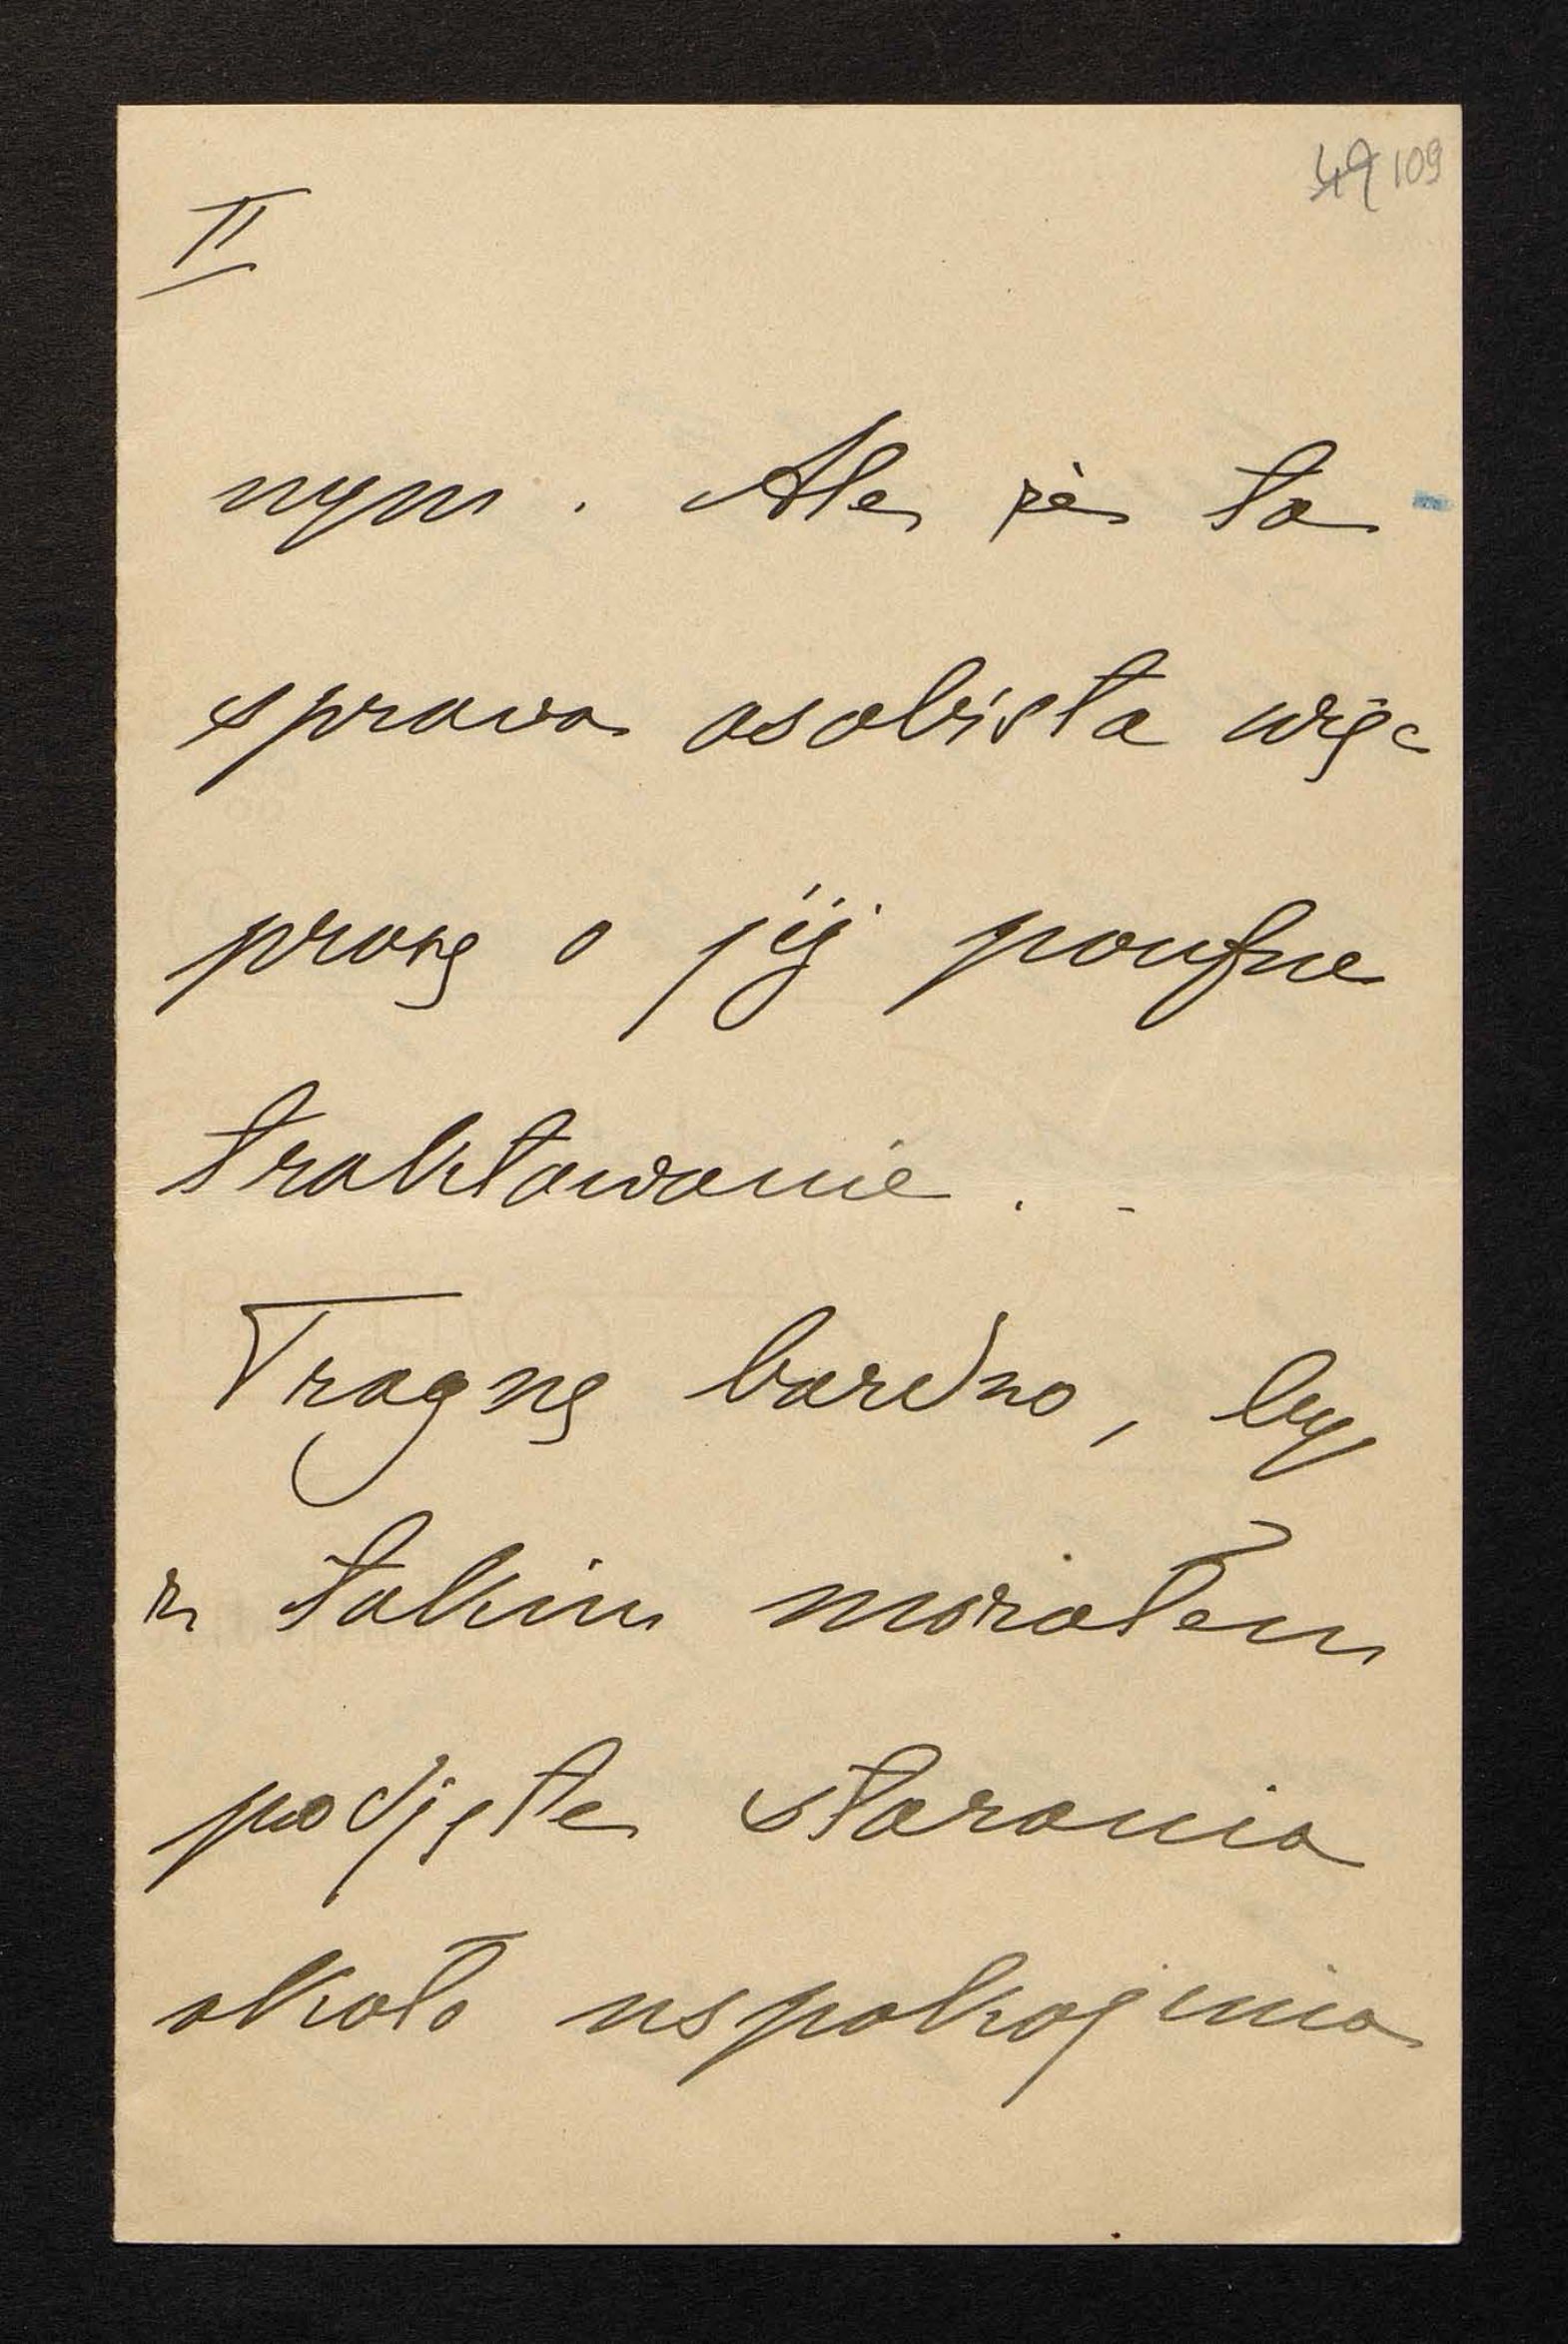 49 109
II
nym. Ale że ta
sprawa osobista więc
proszę o jéj poufne
traktowanie. -
Pragnę bardzo, by
z takim morałem
podjęte starania
około uspokojenia